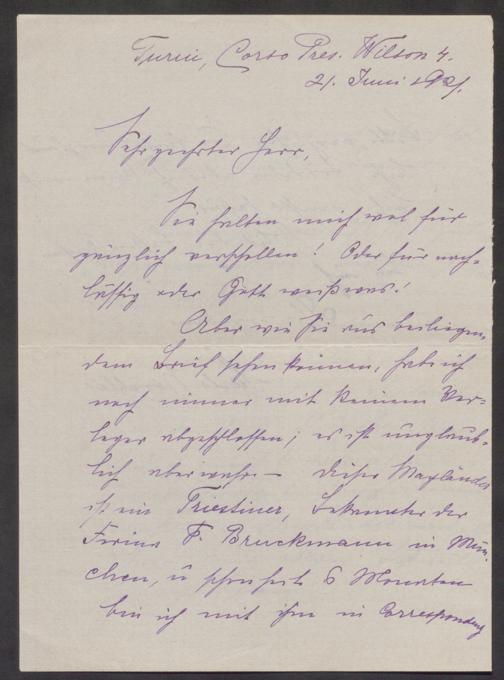 Turin, Corso Pres. Wilson 4.
21. Juni 1921.
Sehr geehrter Herr,
Sie halten mich wol für
gänzlich verschollen! Oder für nach-
lässig oder Gott weiß was!
Aber wie Sie aus beiliegen-
dem Brief sehen können, habe ich
noch immer mit keinem Ver-
leger abgeschlossen; es ist unglaub-
lich aber wahr. — Dieser Mayländer
ist ein Triestiner, Bekannter der
Firma F. Bruckmann in Mün-
chen, u schon seit 6 Monaten
bin ich mit ihm in Correspondenz